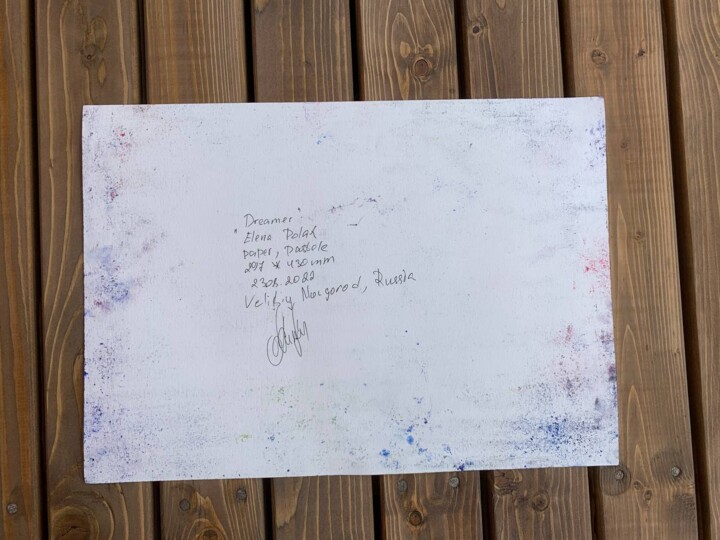 "Dreamer"
Elena Polak
paper, pastele
297 * 430mm
2308.2022
Velikiy Novgorod, Russia